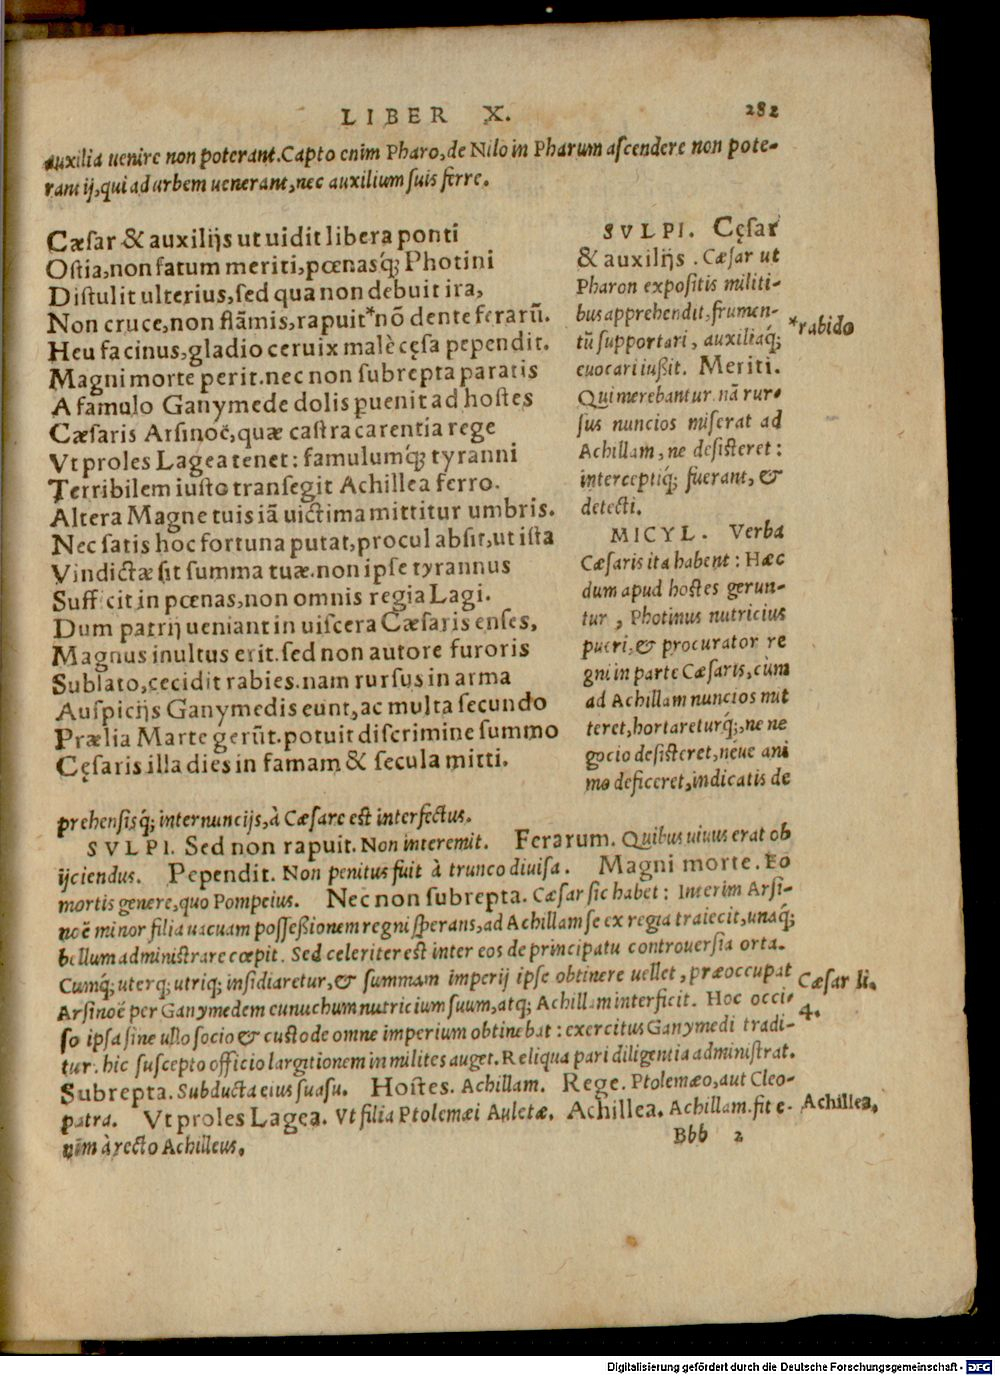 LIBER X. 282
auxilia uenire non poterant. Capto enim Pharo, de Nilo in Pharum ascendere non pote-
rant ij, qui ad urbem uenerant, nec auxilium suis ferre.
Cæsar & auxilijs ut uidit libera ponti
Ostia, non fatum meriti, pœnasq́; Photini
Distulit ulterius, sed qua non debuit ira,
Non cruce, non flāmis, rapuit* nō dente ferarū.
Heu facinus, gladio ceruix malè cęsa pependit.
Magni morte perit. nec non subrepta paratis
A famulo Ganymede dolis puenit ad hostes
Cæsaris Arsinoë, quæ castra carentia rege
Vt proles Lagea tenet: famulumq́; tyranni
Terribilem iusto transegit Achillea ferro.
Altera Magne tuis iā uictima mittitur umbris.
Nec satis hoc fortuna putat, procul absit, ut ista
Vindictæ sit summa tuæ. non ipse tyrannus
Sufficit in pœnas, non omnis regia Lagi.
Dum patrij ueniant in uiscera Cæsaris enses,
Magnus inultus erit. sed non autore furoris
Sublato, cecidit rabies. nam rursus in arma
Auspicijs Ganymedis eunt, ac multa secundo
Prælia Marte gerūt. potuit discrimine summo
Cęsaris illa dies in famam & secula mitti.
SVLPI. Cęsar
& auxilijs. Cæsar ut
Pharon expositis militi-
bus apprehendit, frumen-
tū supportari, auxiliaq́;
euocari iußit. Meriti.
Qui merebantur. nā rur-
sus nuncios miserat ad
Achillam, ne desisteret:
interceptiq́; fuerant, &
detecti.
MICYL. Verba
Cæsaris ita habent: Hæc
dum apud hostes gerun-
tur, Photinus nutricius
pueri, & procurator re
gni in parte Cæsaris, cùm
ad Achillam nuncios mit
teret, hortareturq́;, ne ne
gocio desisteret, néue ani
mo deficeret, indicatis de
*rabido
prehensisq́; internuncijs, à Cæsare est interfectus.
SVLPI. Sed non rapuit. Non interemit. Ferarum. Quibus uiuus erat ob
ijciendus. Pependit. Non penitus fuit à trunco diuisa. Magni morte. Eo
mortis genere, quo Pompeius. Nec non subrepta. Cæsar sic habet: Interim Arsi-
noë minor filia uacuam possessionem regni sperans, ad Achillam se ex regia traiecit, unaq́;
bellum administrare cœpit. Sed celeriter est inter eos de principatu controuersia orta.
Cumq́; uterq; utriq; insidiaretur, & summam imperij ipse obtinere uellet, præoccupat
Arsinoë per Ganymedem eunuchum nutricium suum, atq; Achillam interficit. Hoc occi-
so ipsa sine ullo socio & custode omne imperium obtinebat: exercitus Ganymedi tradi-
tur. hic suscepto officio largitionem in milites auget. Reliqua pari diligentia administrat.
Subrepta. Subducta eius suasu. Hostes. Achillam. Rege. Ptolemæo, aut Cleo-
patra. Vt proles Lagea. Vt filia Ptolemæi Auletæ. Achillea. Achillam. fit e-
nim à recto Achilleus.
Cæsar li.
4.
Achillea.
Bbb 2
Digitalisierung gefördert durch die Deutsche Forschungsgemeinschaft - DFG